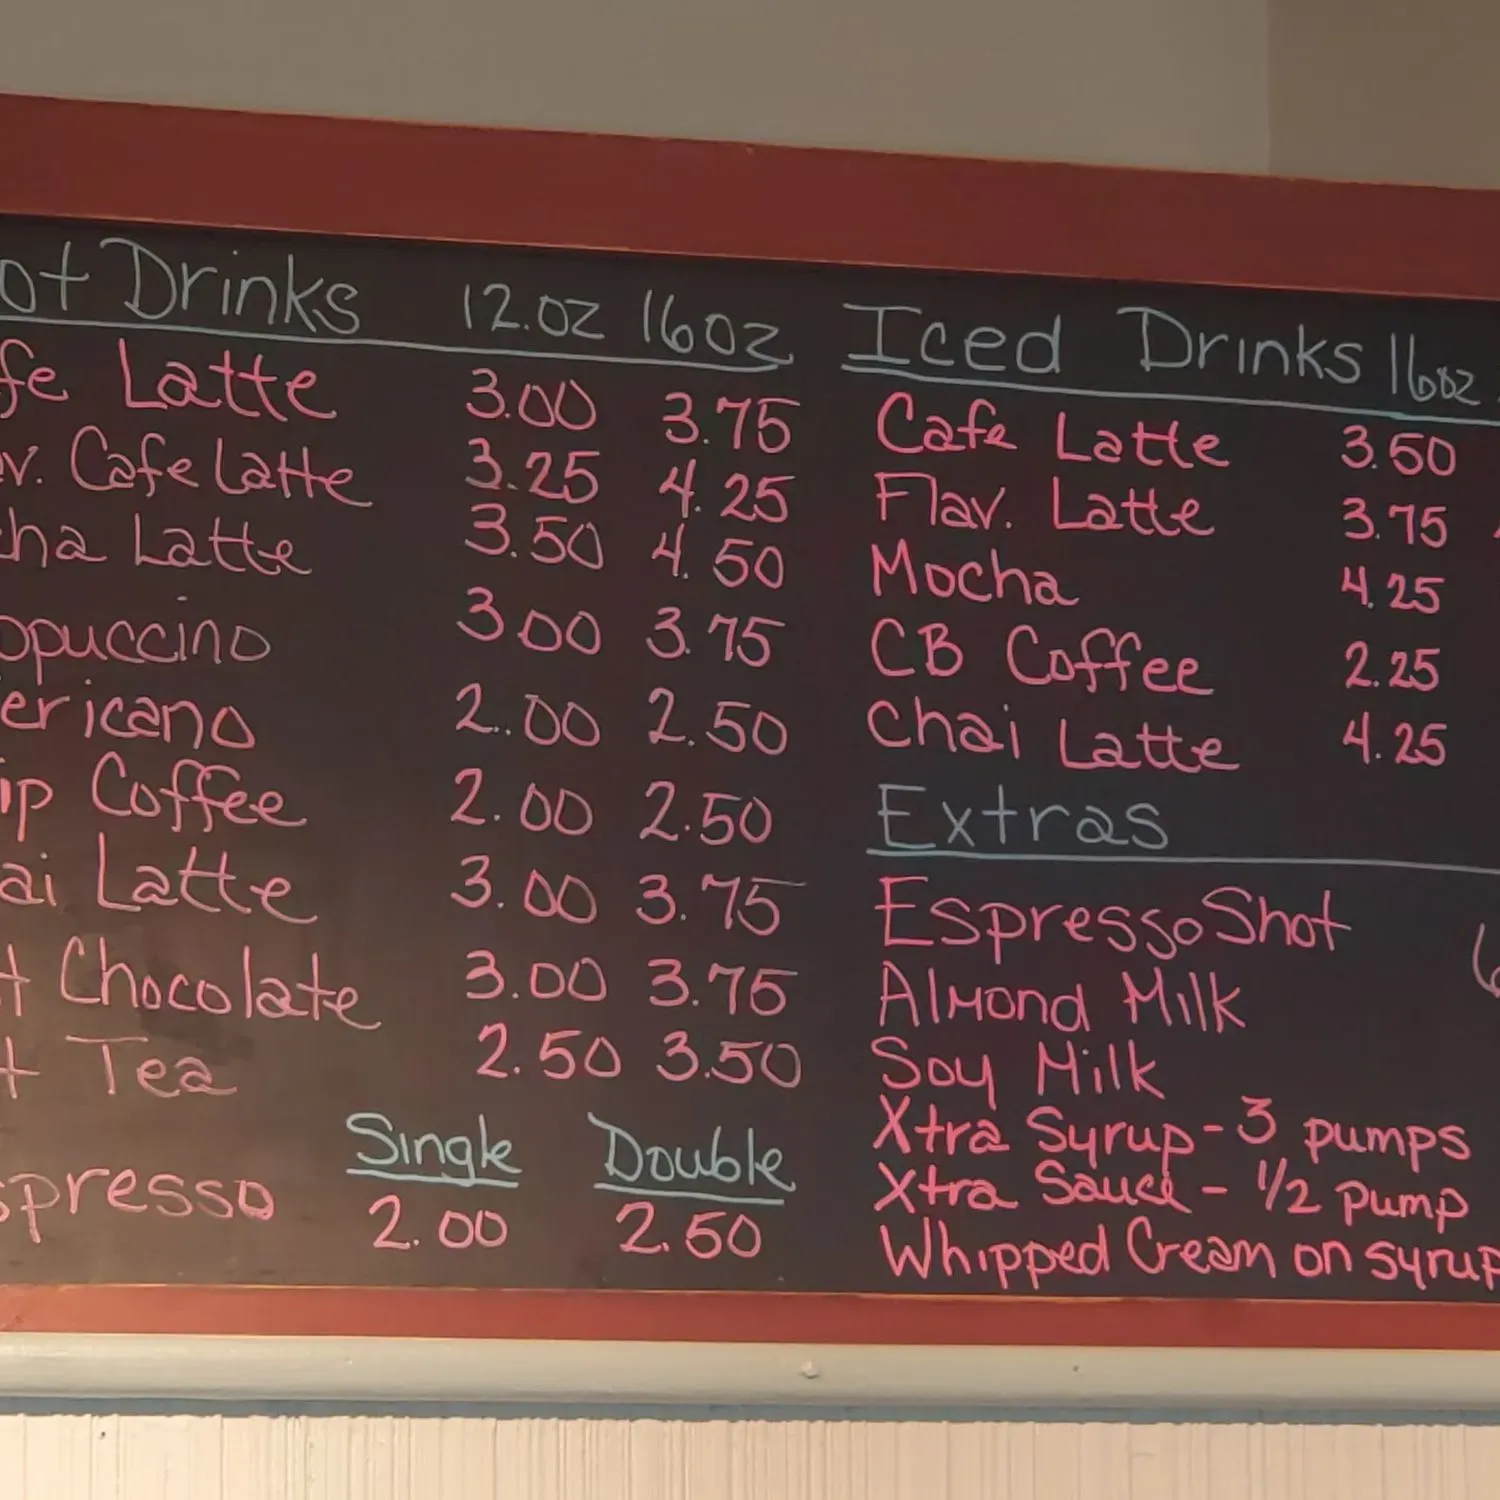 ot Drinks 12.oz 16oz
fe Latte 3.00 3.75
v. Cafe Latte 3.25 4.25
cha Latte 3.50 4.50
ppuccino 3.00 3.75
ericano 2.00 2.50
ip Coffee 2.00 2.50
ai Latte 3.00 3.75
t Chocolate 3.00 3.75
t Tea 2.50 3.50
Single Double
spresso 2.00 2.50
Iced Drinks 16oz
Cafe Latte 3.50
Flav. Latte 3.75
Mocha 4.25
CB Coffee 2.25
Chai Latte 4.25
Extras
Espresso Shot
Almond Milk
Soy Milk
Xtra Syrup - 3 pumps
Xtra Sauce - 1/2 pump
Whipped Cream on syrup